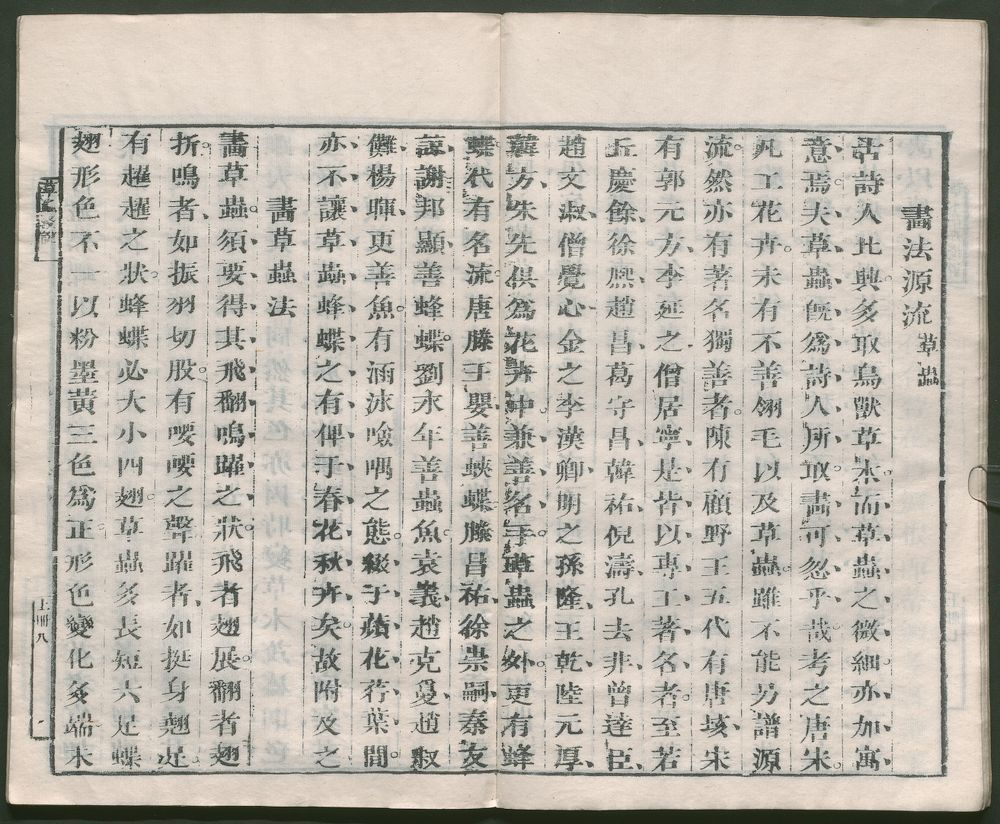 畫法源流草蟲
古詩人比興多取鳥獸草木而草蟲之微細亦加寓
意焉夫草蟲既為詩人所取畫可忽乎哉考之唐宋
凡工花卉未有不善翎毛以及草蟲雖不能另譜源
流然亦有著名獨善者陳有顧野王五代有唐垓宋
有郭元方李延之僧居寧是皆以專工著名者至若
丘慶餘徐熈趙昌葛守昌韓祐倪濤孔去非曾達臣
趙文淑僧覺心金之李漢卿明之孫隆王乾陸元厚
韓方朱先俱為花卉中兼善名手草蟲之外更有蜂
蝶代有名流唐滕王嬰善蛺蝶滕昌祐徐崇嗣秦友
諒謝邦顯善蜂蝶劉永年善蟲魚袁義趙克夐趙叔
儺楊暉更善魚有涵泳噞喁之態綴于菰花荇葉間
亦不讓草蟲蜂蝶之有俾于春花秋卉矣故附及之
畫草蟲法
畫草蟲須要得其飛翻鳴躍之狀飛者翅展翻者翅
折鳴者如振羽切股有喓喓之聲躍者如挺身翹足
有趯趯之狀蜂蝶必大小四翅草蟲多長短六足蝶
翅形色不一以粉墨黄三色為正形色變化多端未
上冊 八